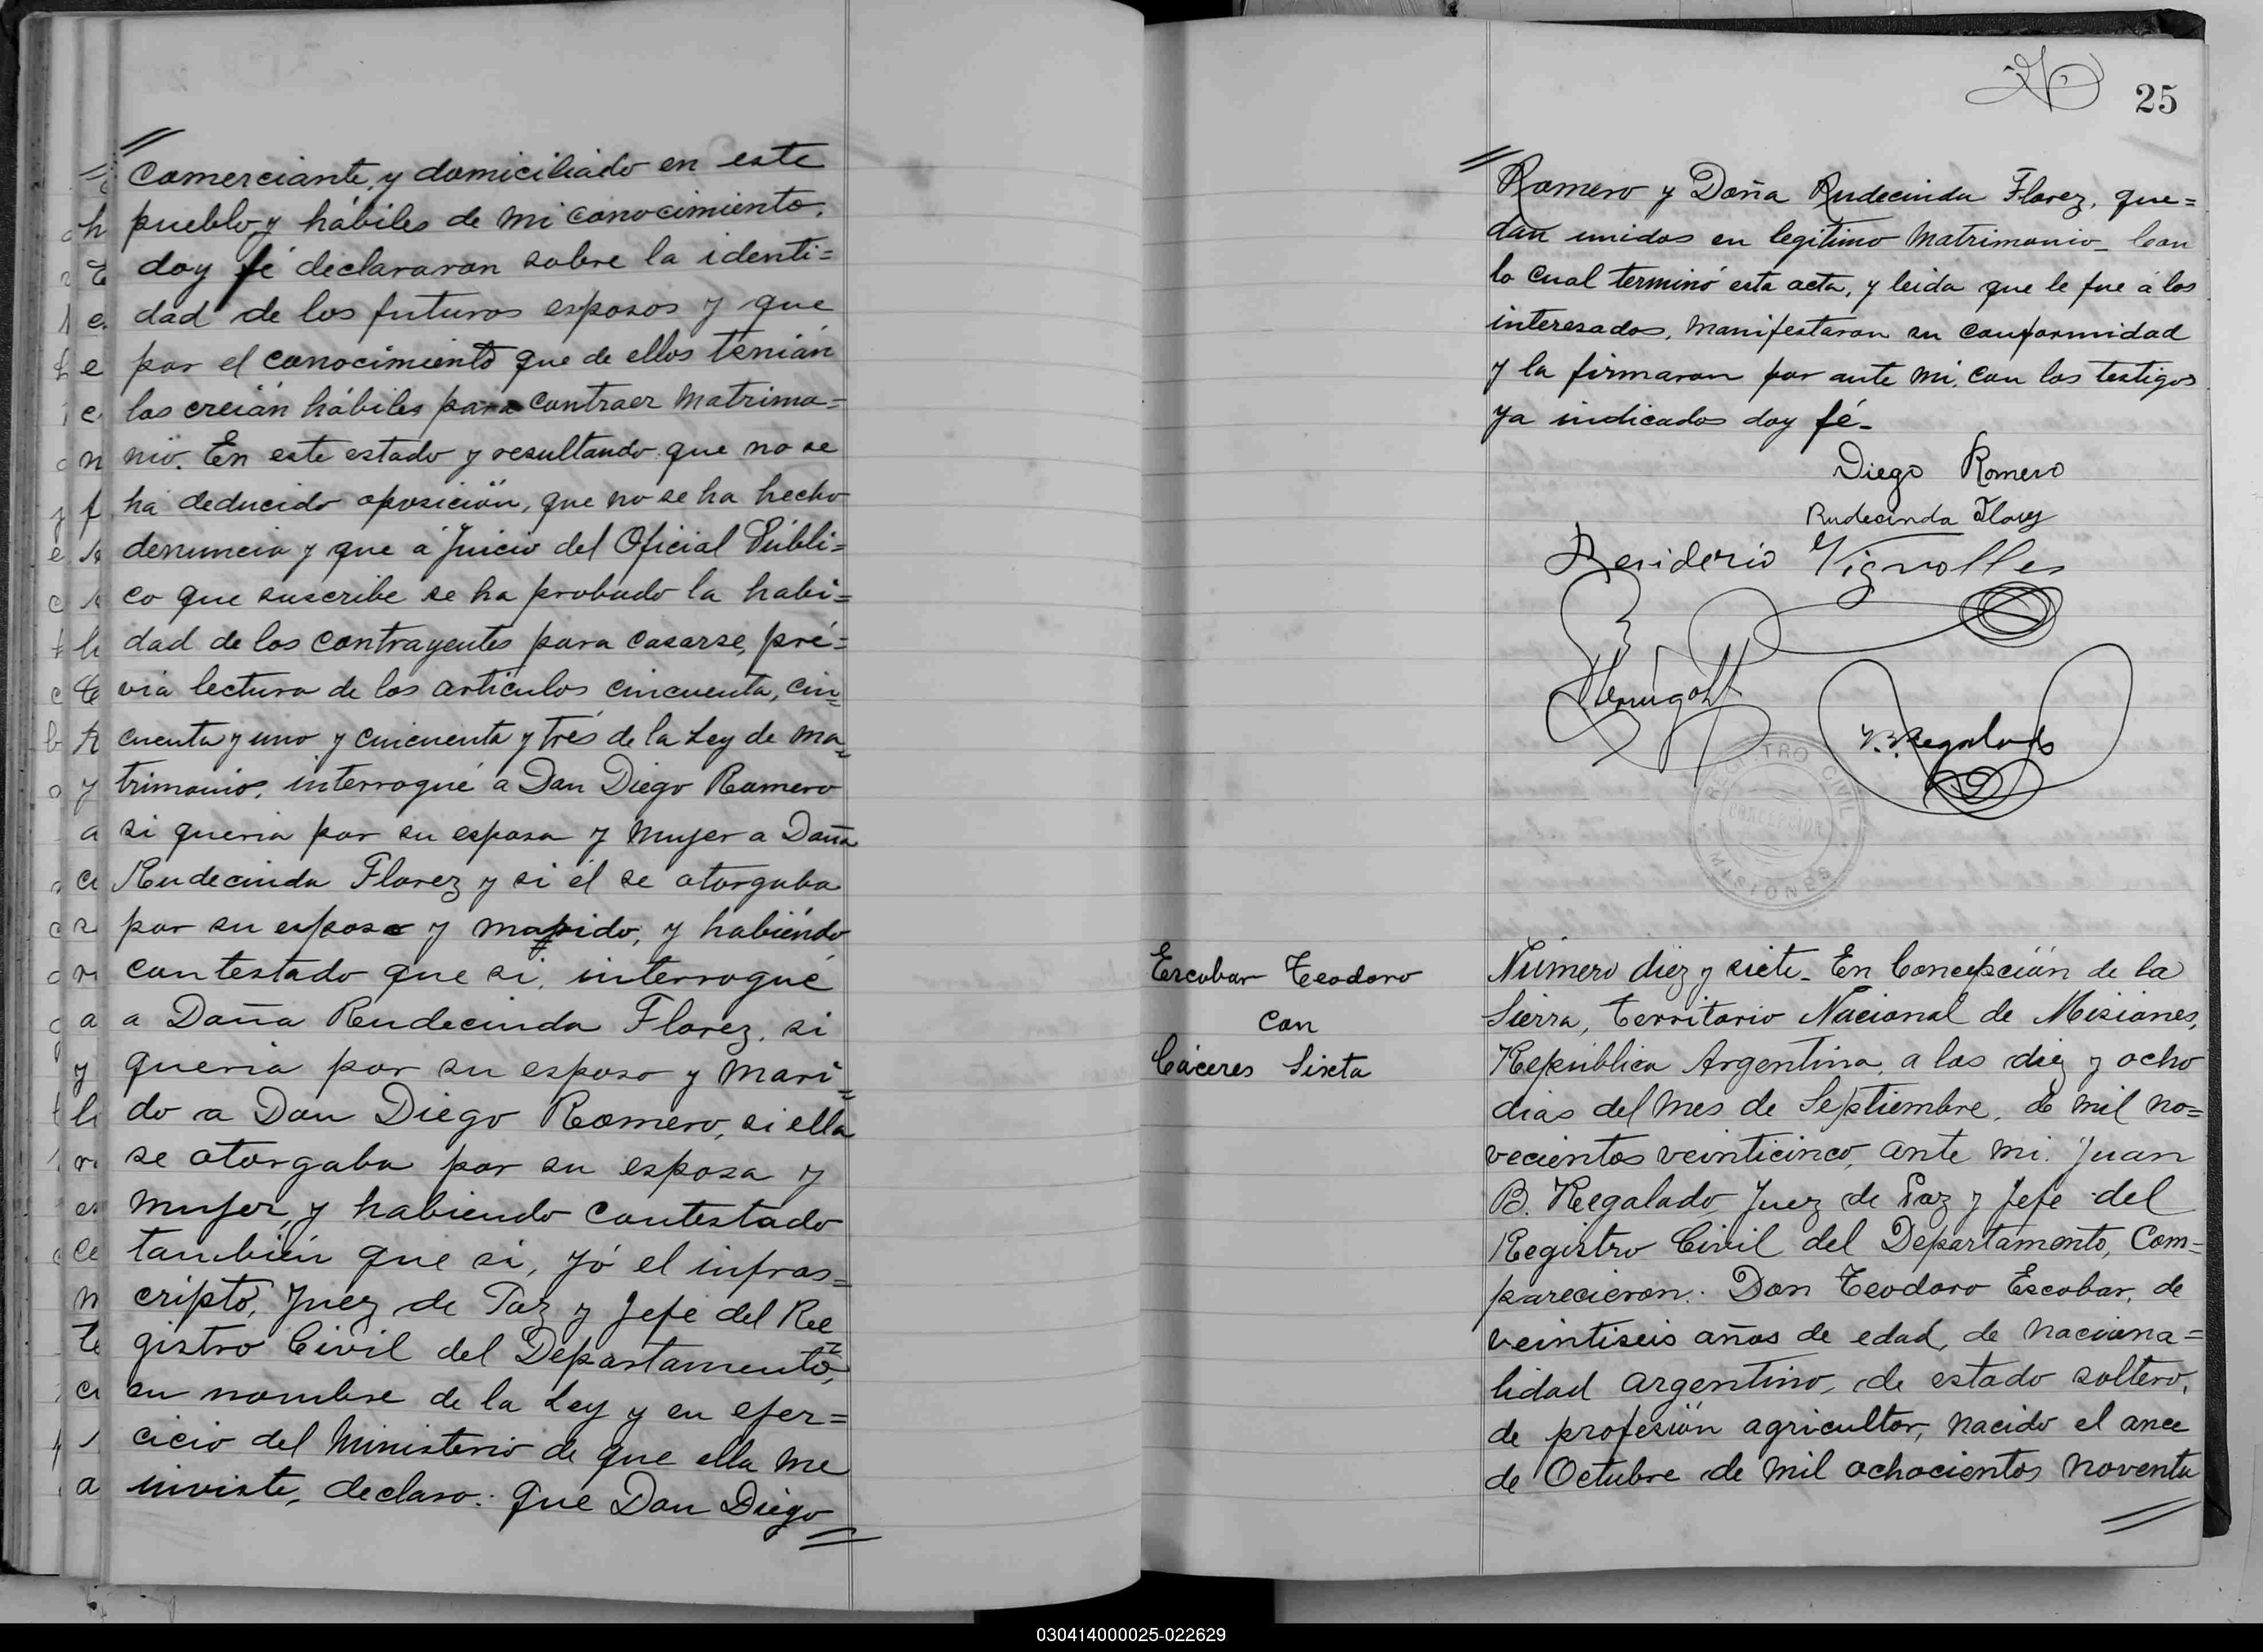 Comerciante, y domiciliado en este
pueblo y hábiles de mi conocimiento,
doy fé declararon sobre la identi=
dad de los futuros esposos y que
por el conocimiento que de ellos tenián
los creián hábiles para contraer matrimo=
nio. En este estado y resultando que no se
ha deducido oposición, que no se ha hecho
denuncia y que á juicio del Oficial Públi=
co que suscribe se ha probado la habi=
dad de los contrayentes para casarse, pré=
via lectura de los artículos cincuenta, cin=
cuenta y uno y cincuenta y trés de la Ley de ma=
trimonio, interrogué a Don Diego Romero
si queria por su esposa y mujer a Doña
Rudecinda Florez y si él se otorgaba
por su esposo y marido, y habiéndo
contestado que si, interrogué
a Doña Rudecinda Florez, si
queria por su esposo y mari=
do a Don Diego Romero, si ella
se otorgaba por su esposa y
mujer, y habiendo contestado
también que si, yó el infras=
cripto, Juez de Paz y Jefe del Re=
gistro Civil del Departamento,
en nombre de la Ley y en ejer=
cicio del Ministerio de que ella me
inviste, declaro: que Don Diego
25
Romero y Doña Rudecinda Florez, que=
dan unidos en legitimo Matrimonio_ Con
lo cual terminó esta acta, y leida que le fue á los
interesados, manifestaron su conformidad
y la firmaron por ante mi, con los testigos
ya indicados doy fé_
Diego Romero
Rudecinda Florez
Desiderio Vignolles
J.B. Regalado
REGISTRO CIVIL
CONCEPCION
MISIONES
Escobar Teodoro
con
Cáceres Sixta
Número diez y siete_ En Concepción de la
Sierra, Territorio Nacional de Misiones,
República Argentina, a los diez y ocho
dias del mes de Septiembre, de mil no=
vecientos veinticinco, ante mi. Juan
B. Regalado, Juez de Paz y Jefe del
Registro Civil del Departamento, Com=
parecieron: Don Teodoro Escobar, de
veintiseis años de edad, de naciona=
lidad argentino, de estado soltero,
de profesión agricultor, nacido el once
de Octubre de mil ochocientos noventa
030414000025-022629